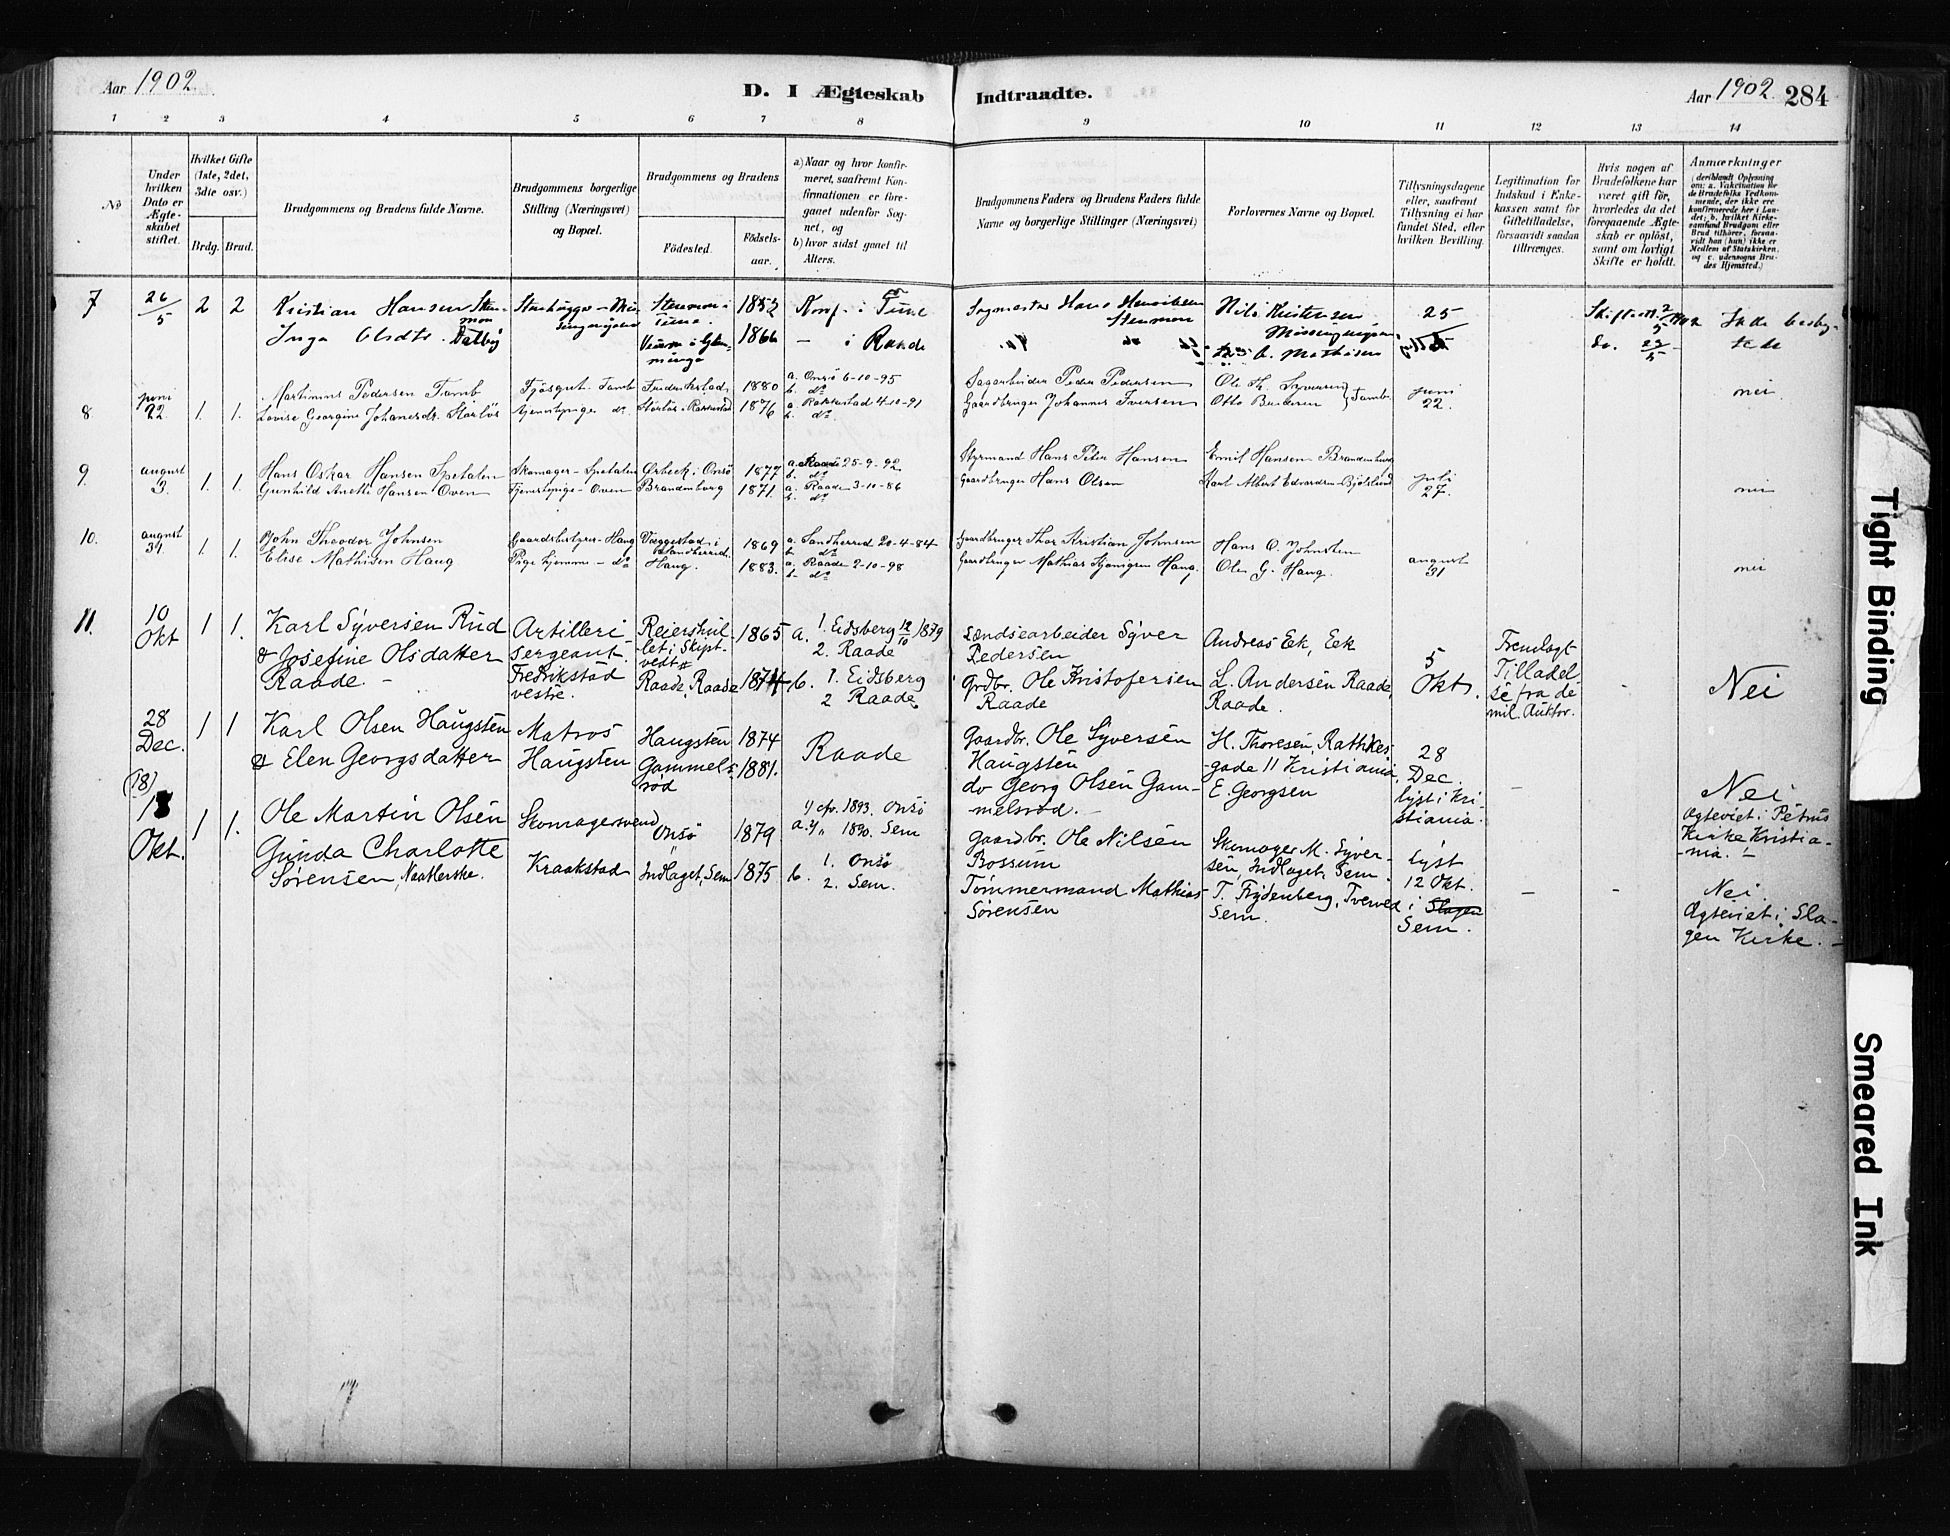 Aar 1902
D. I Ægteskab Indtraadte.
Aar 1902. 284
1 2 3 4 5 6 7 8 9 10 11 12 13 14
No
Under hvilken Dato er Ægteskabet stiftet.
Hvilket Gifte (1ste, 2det, 3die osv.)
Brdg. Brud.
Brudgommens og Brudens fulde Navne.
Brudgommens borgerlige Stilling (Næringsvei) og Bopæl.
Brudgommens og Brudens
Födested.
Födselsaar.
a) Naar og hvor konfirmeret, saafremt Konfirmationen er foregaaet udenfor Sognet, og
b) hvor sidst gaaet til Alters.
Brudgommens Faders og Brudens Faders fulde Navne og borgerlige Stillinger (Næringsvei)
Forlovernes Navne og Bopæl.
Tillysningsdagene eller, saafremt Tillysning ei har fundet Sted, efter hvilken Bevilling.
Legitimation for Indskud i Enkekassen samt for Giftetilladelse, forsaavidt saadan tiltrænges.
Hvis nogen af Brudefolkene har været gift för, hvorledes da det foregaaende Ægteskab er oplöst, samt om lovligt Skifte er holdt.
Anmærkninger (deriblandt Oplysning om: a. Vakcination for de Brudefolks Vedkommende, der ikke ere konfirmerede her i Landet; b. hvilket Kirkesamfund Brudgom eller Brud tilhörer, forsaavidt han (hun) ikke er Medlem af Statskirken. og c. udensogns Brudes Hjemsted.)
7 26/5 2 2 Kristian Hansen Stenmon
Stenmon i Tune. 1852 Konf. i Tune
Hans Henriksen Stenmon
25
Inga Olsdtr. Dalby
1866 — i Raade
8 juni 22 1. 1. Martinius Pedersen Tamb
Tamb Frederikstad 1880 a. Onsö 6-10-95 b. do
Sagarbeider Peder Pedersen
Ole Syversen
juni 22.
nei
Lovise Georgine Johanesdt.
Tjenestepige do Rakkestad 1876 a. Rakkestad 4-10-91 b. do
Gaardbruger Johannes Iversen
Otto } Tamb.
9. august 3. 1. 1. Hans Oskar Hansen Spetalen
Skomager - Spetalen Ørbeck i Onsö 1877 a. Raade 25-9-92 b. do
Styrmand Hans Peter Hansen
Emil Hansen
juli 27.
nei
Gunhild Anette Hansen Oven
Tjenestepige - Oven Brandenborg 1871. a. Raade 3-10-86 b. do
Gaardbruger Hans Olsen
Karl Albert Edvardsen
10. august 31. 1. 1. John Theodor Johnsen
Gaardsbestyrer - Haug Væggestad i Sandherred. 1869 a. Sandherred 20-4-84 b. do
Gaardbruger Thor Kristian Johnsen
Hans O. Johnsten
august 31
nei
Elise Mathisen Haug
Pige hjemme - do Haug. 1883. a. Raade 2-10-98 b. do
Gaardbruger Mathias Haug.
Ole G. Haug.
11. 10 Okt 1 1. Karl Syversen Rud
Artillerisergeant. Fredrikstad vestre.
Reiershullet i Skiptvedt 1865 a. 1. Eidsberg 12/10 1879 2. Raade
Lændsearbeider Syver Pedersen
Andreas Eek, Eek
5 Okt.
Fremlagt Tilladelse fra de mil. Auktor.
-
Nei
& Josefine Olsdatter Raade. -
Raade, Raade 1874 b. 1. Eidsberg 2 Raade
Grdbr. Ole Kristofersen Raade
L. Andersen Raade, Raade.
28 Dec. 1 1 Karl Olsen Haugsten
Matros Haugsten
Haugsten 1874
Raade
Gaardbr. Ole Syversen Haugsten
H. Thoresen, Rathkesgade 11 Kristiania,
28 Dec. lyst i Kristiania.
—
Nei
Ægteviet i Petrus Kirke Kristiania. -
& Elen Georgsdatter
Gammelsrød 1881.
do Georg Olsen Gammelsrød. -
E. Georgsen
(18)
18 Okt. 1 1. Ole Martin Olsen
Skomagersvend
Onsö 1879. 1893. Onsö
1890. Sem
Gaardbr. Ole Nilsen Rossum
Skomager M. Syversen, Indlaget, Sem.
Lyst 12 Okt. i Slagen Sem.
—
-
Nei
Ægteviet i Slagen Kirke. -
Gunda Charlotte Sørensen,
Kraakstad
Indlaget, Sem 1875 b. 1. Onsö 2. Sem.
Tømmermand Mathias Sørensen
T. Frydenberg, Tverved Sem.
Tight Binding
Smeared Ink